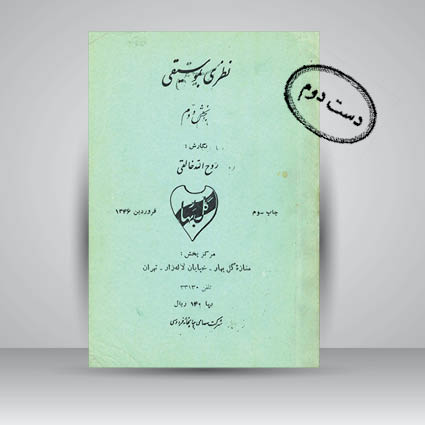 نظری بموسیقی
بخش دوم
نگارش :
روح الله خالقی
گل بهار
چاپ سوم
فروردین ۱۳۴۶
مرکز پخش :
مغازهٔ گل بهار - خیابان لاله‌زار - تهران
تلفن ۳۳۱۳۰
بها ۱۴۰ ریال
شرکت سهامی چاپخانه فردوسی
دست دوم